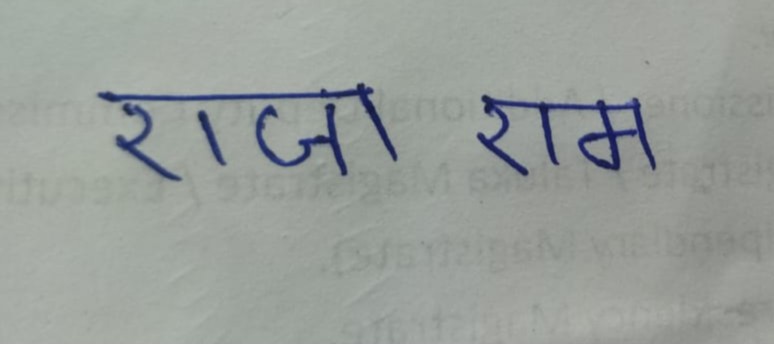 राजा राम